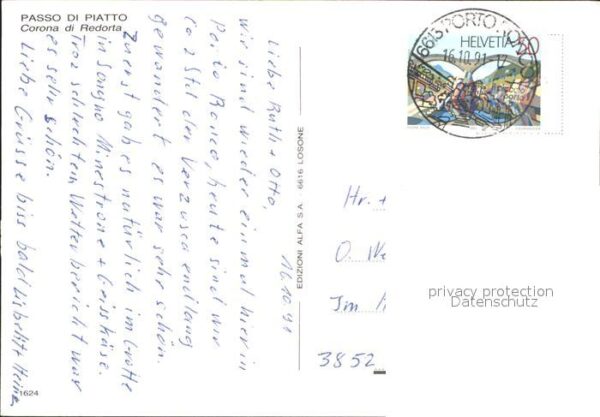 PASSO DI PIATTO
Corona di Redorta
16.10.91
Liebe Ruth + Otto,
wir sind wieder einmal hier in
Porto Ronco, heute sind wir
ca 2 Std der Verzasca entlang
gewandert es war sehr schön.
Zuerst gab es natürlich im Grotto
in Sonogno Minestrone + Geisskäse.
Trotz schlechtem Wetterbericht war
es sehr schön.
Liebe Grüsse biss bald
EDIZIONI ALFA S.A. 6616 LOSONE
1624
6613 PORTO
16.10.91
HELVETIA
50
Hr. +
O. We
Im
3852
privacy protection
Datenschutz